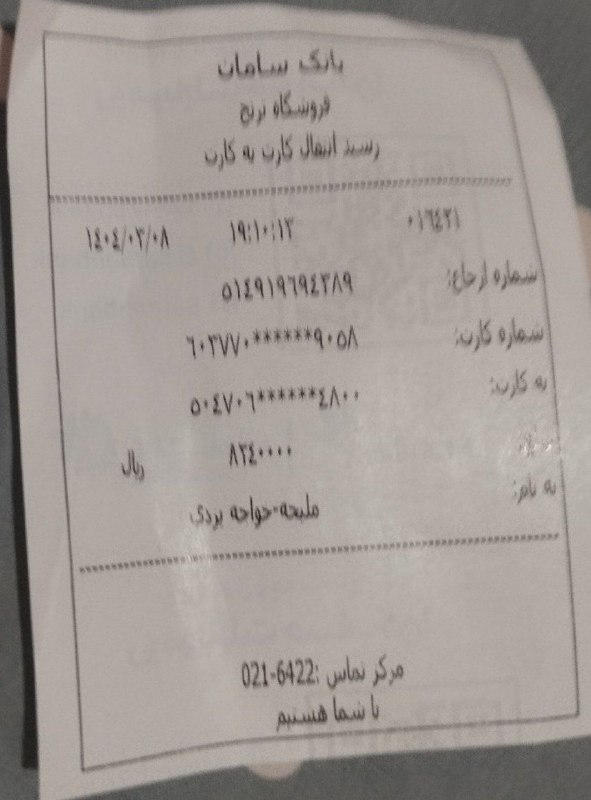 بانک سامان
فروشگاه برنج
رسید انتقال کارت به کارت
۰۱۶۴۳۱ ۱۹:۱۰:۱۳ ۱۴۰۴/۰۳/۰۸
شماره ارجاع: ۵۱۴۹۱۹۶۹۴۳۸۹
شماره کارت: ۶۰۳۷۷۰******۹۰۵۸
به کارت: ۵۰۴۷۰۶******۴۸۰۰
۸۲۴۰۰۰۰ ریال
به نام: ملیحه-خواجه یزدی
مرکز تماس :6422-021
با شما هستیم